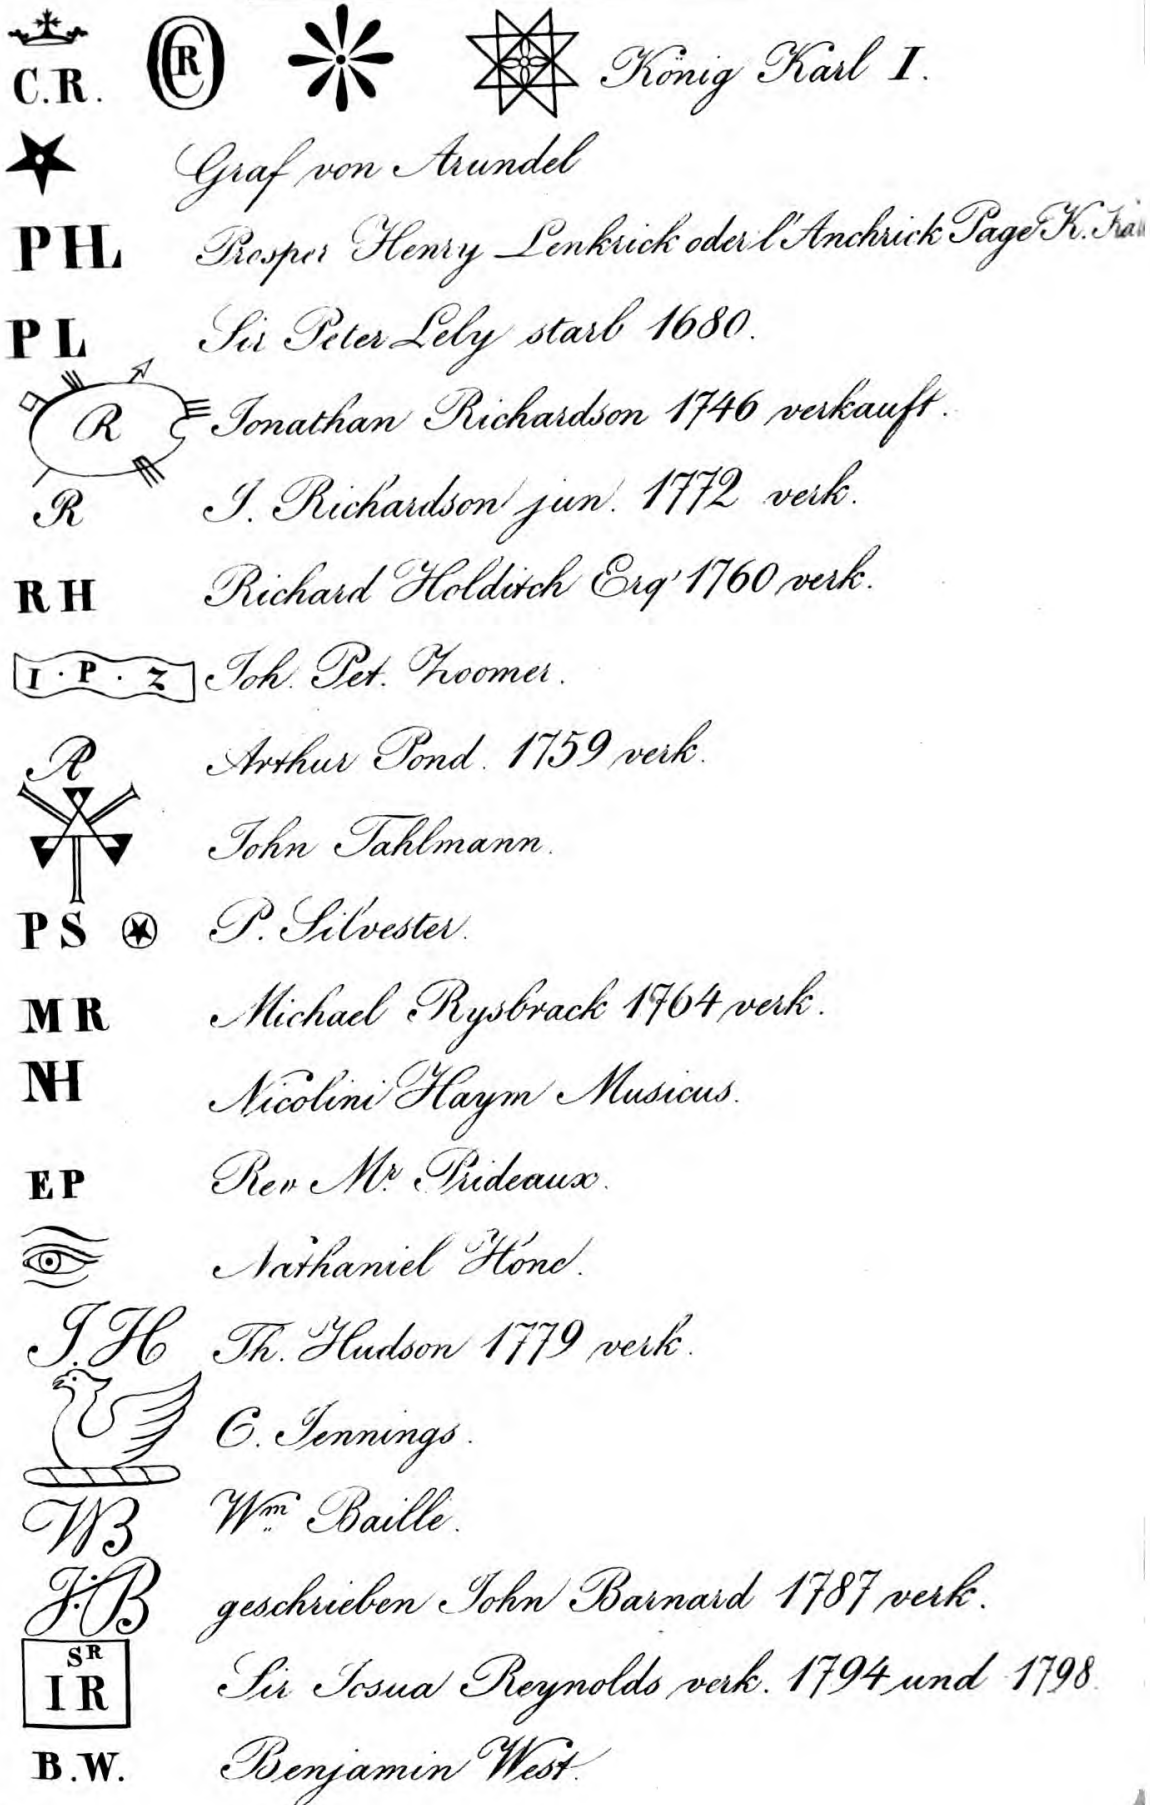 C.R. CR König Karl I.
Graf von Arundel
PHL Prosper Henry Lenkrick oder l'Anchrick Page K.
PL Sir Peter Lely starb 1680.
R Jonathan Richardson 1746 verkauft.
R J. Richardson jun. 1772 verk.
RH Richard Holditch Erqʳ 1760 verk.
I·P·Z Joh. Pet. Zoomer.
AP Arthur Pond. 1759 verk.
John Tahlmann.
PS P. Silvester.
MR Michael Rysbrack 1764 verk.
NH Nicolini Haym Musicus.
EP Rev Mr. Prideaux.
Nathaniel Hone.
J.H Th. Hudson 1779 verk.
C. Jennings.
WB Wm. Baille.
J.B geschrieben John Barnard 1787 verk.
SR IR Sir Josua Reynolds verk. 1794 und 1798.
B.W. Benjamin West.